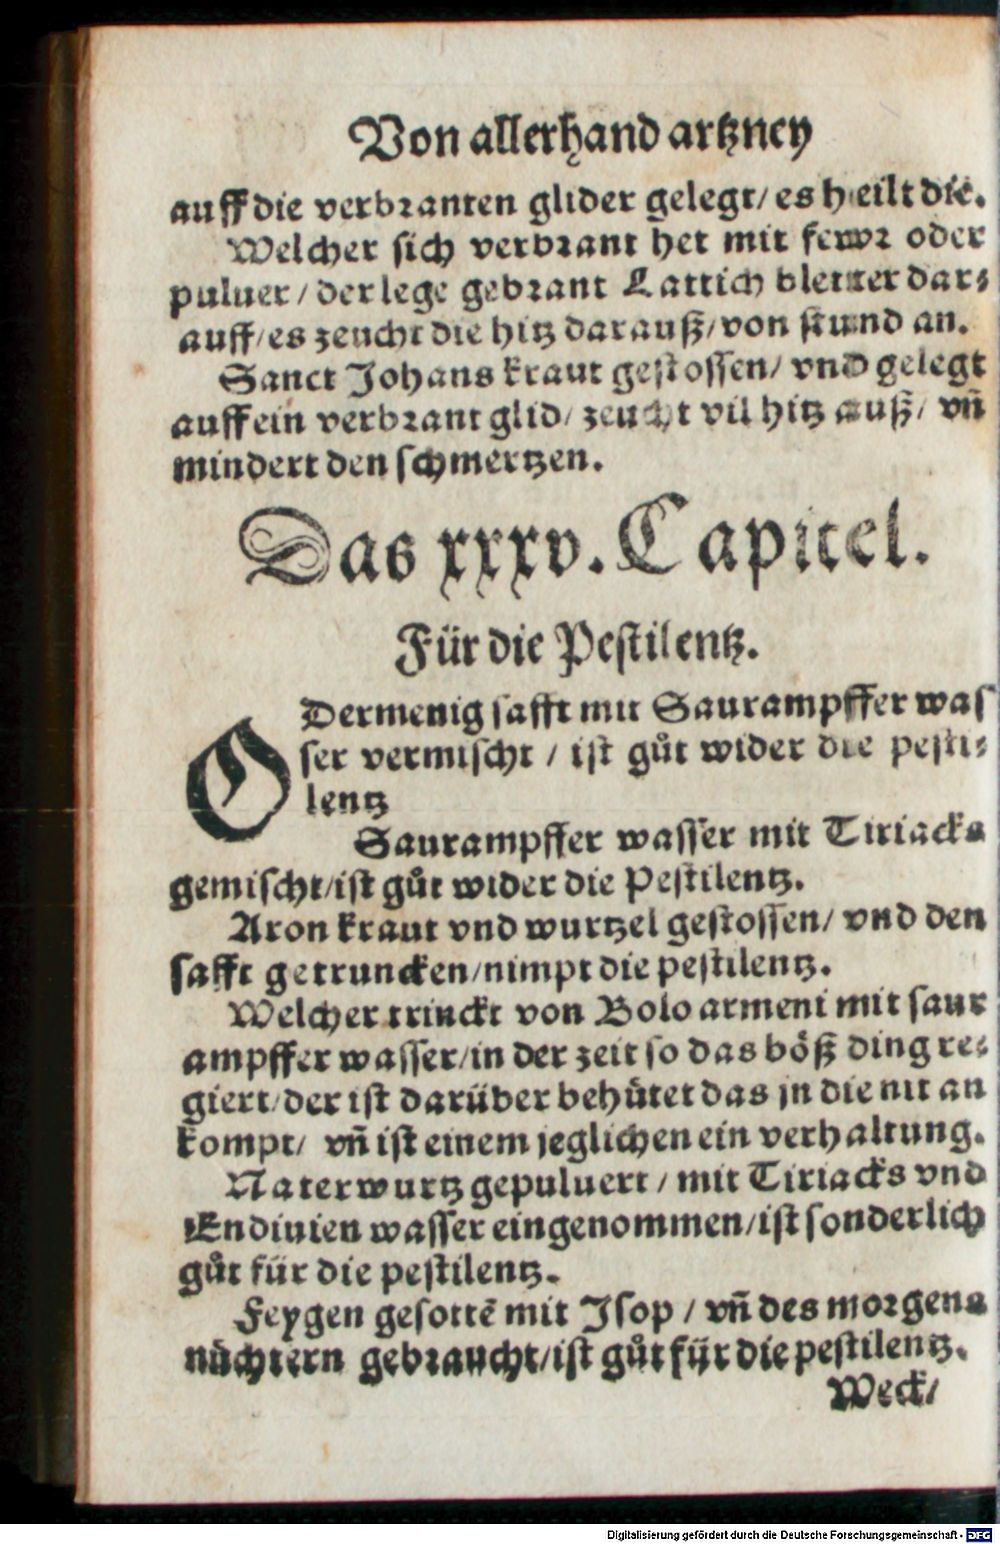 Von allerhand artzney
auff die verbranten glider gelegt/ es heilt die.
Welcher sich verbrant het mit fewr oder
puluer / der lege gebrant Lattich bletter dar⸗
auff/ es zeucht die hitz darauß/ von stund an.
Sanct Johans kraut gestossen/ vnd gelegt
auff ein verbrant glid/ zeucht vil hitz auß/ vñ
mindert den schmertzen.
Das xxxv. Capitel.
Für die Pestilentz.
ODermenig safft mit Saurampffer was
ser vermischt / ist gůt wider die pesti⸗
lentz
Saurampffer wasser mit Tiriacks
gemischt/ ist gůt wider die Pestilentz.
Aron kraut vnd wurtzel gestossen/ vnd den
safft getruncken/ nimpt die pestilentz.
Welcher trinckt von Bolo armeni mit saur
ampffer wasser/ in der zeit so das böß ding re⸗
giert/ der ist darüber behůtet das jn die nit an
kompt/ vñ ist einem jeglichen ein verhaltung.
Naterwurtz gepuluert / mit Tiriacks vnd
Endiuien wasser eingenommen/ ist sonderlich
gůt für die pestilentz.
Feygen gesottē mit Jsop / vñ des morgens
nůchtern gebraucht/ ist gůt für die pestilentz.
Weck/
Digitalisierung gefördert durch die Deutsche Forschungsgemeinschaft - DFG